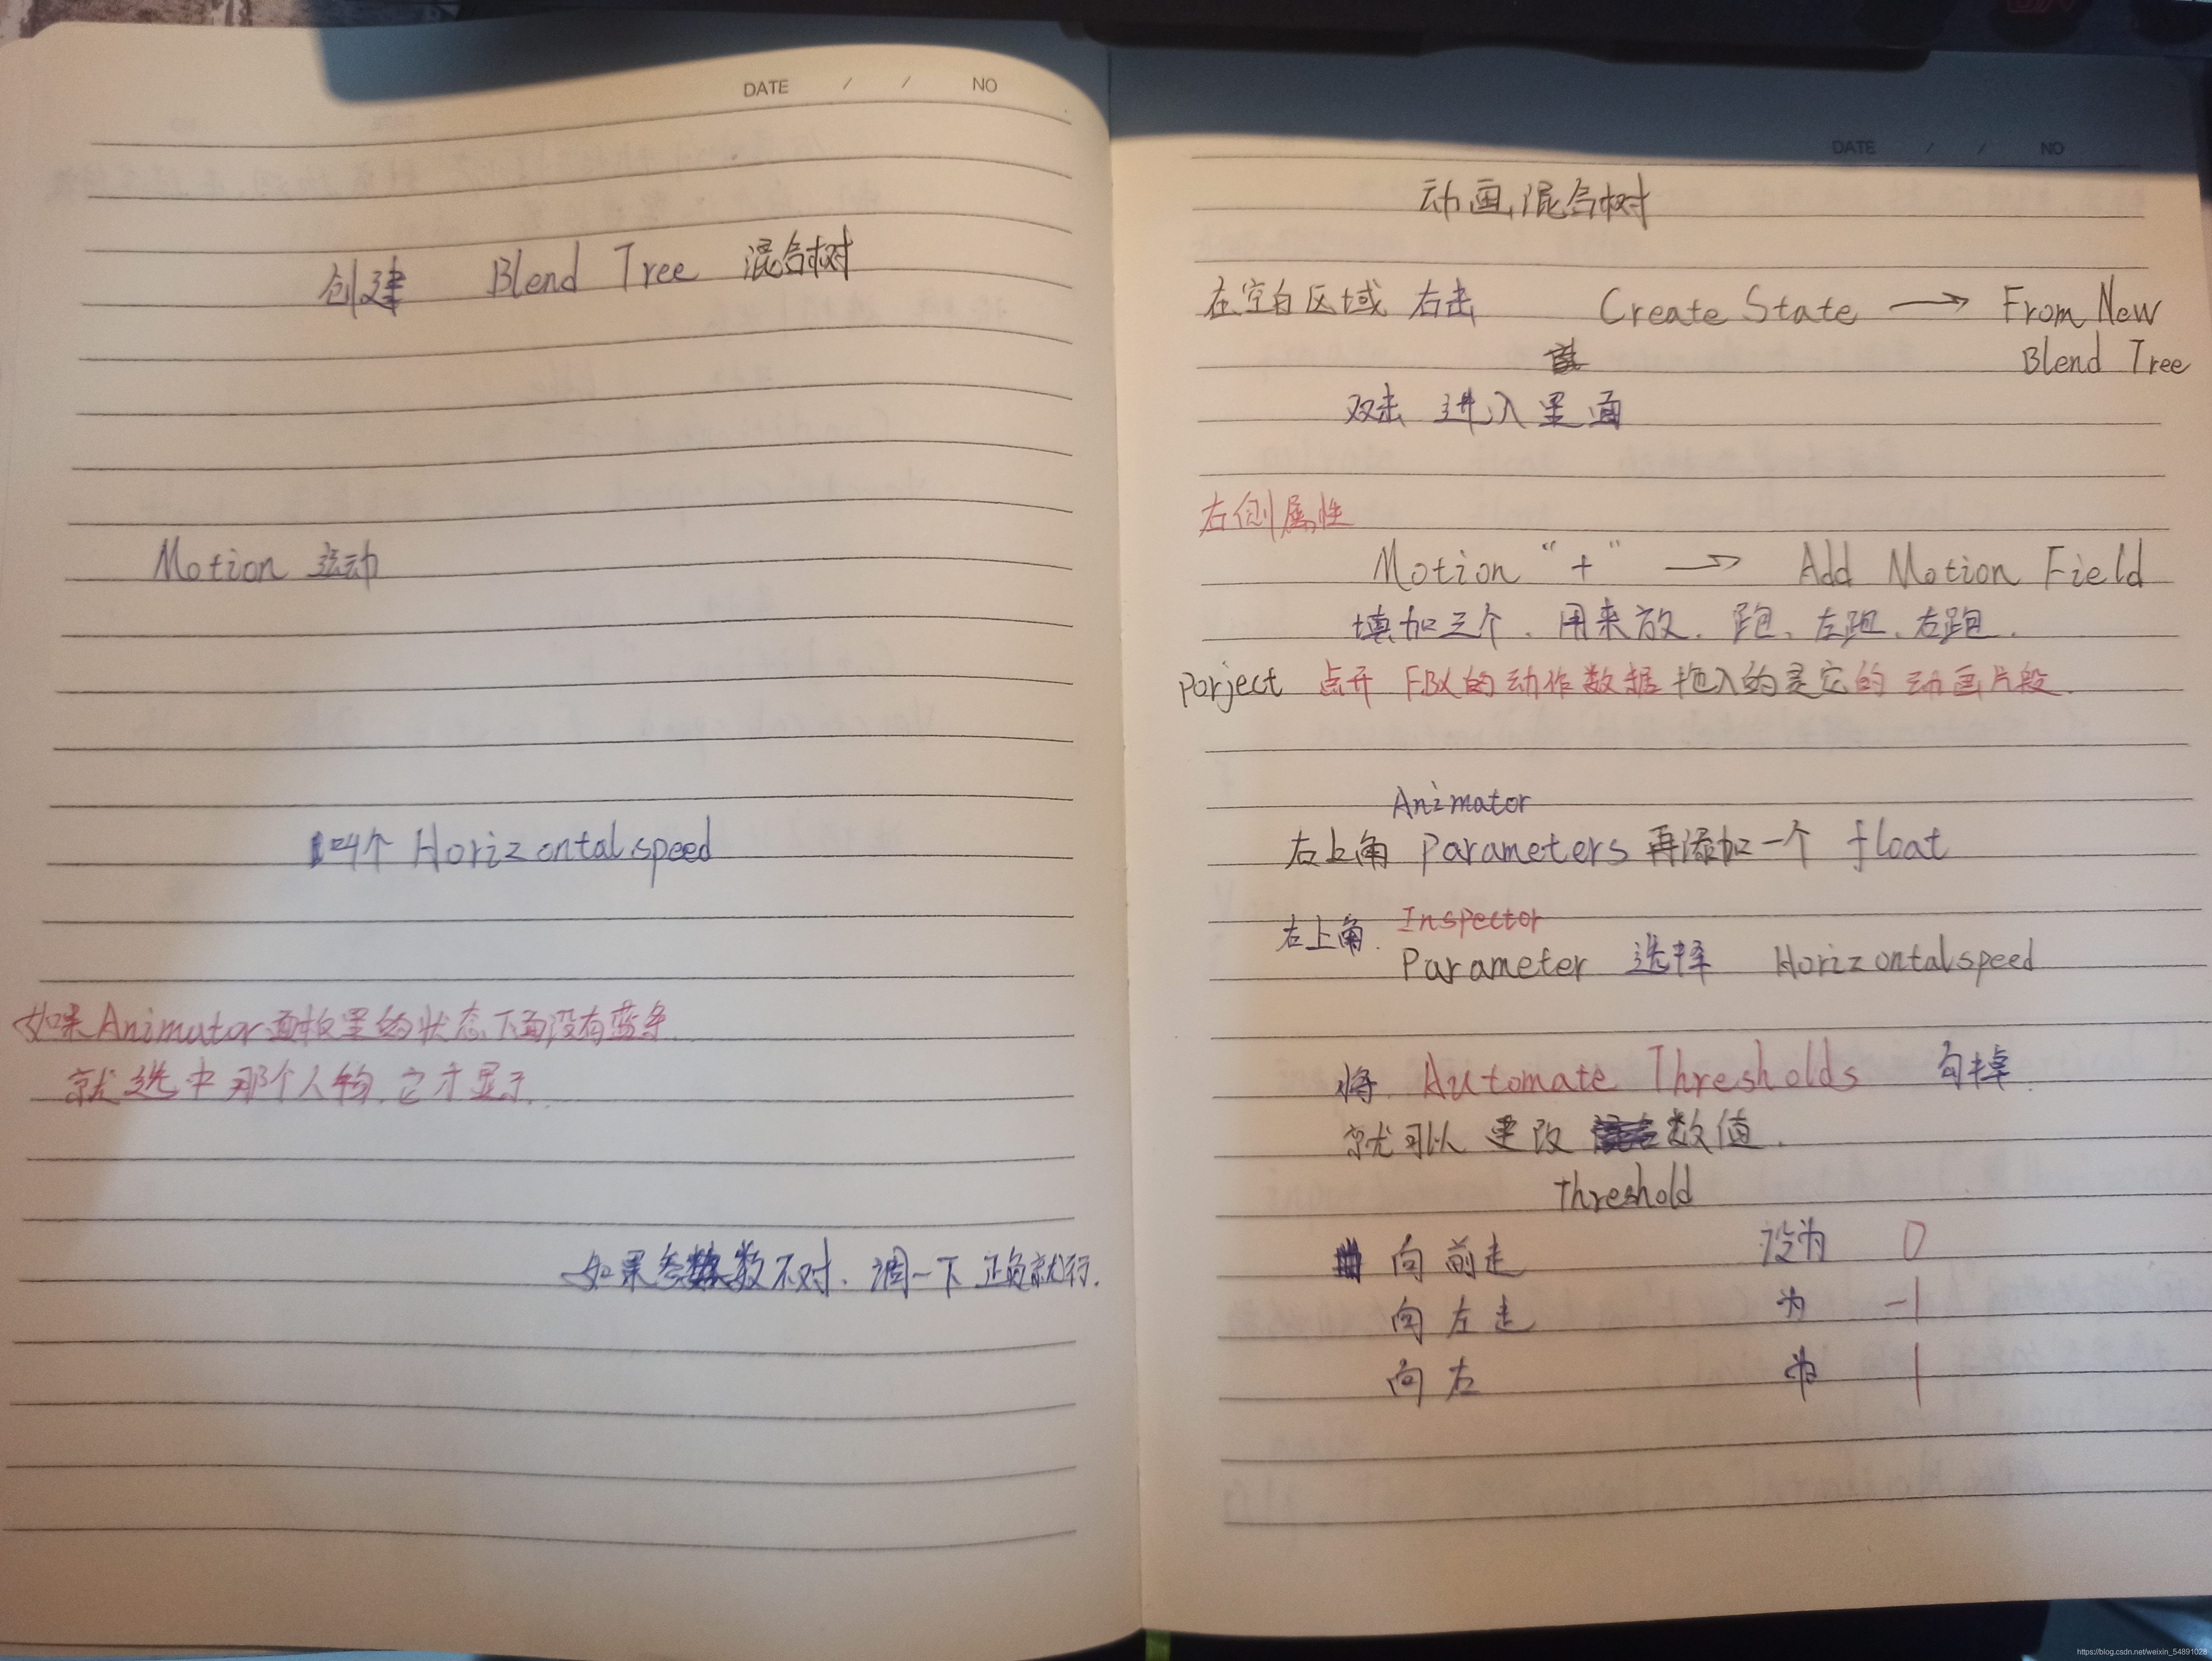 DATE / / NO
创建 Blend Tree 混合树
Motion 运动
叫个 Horizontalspeed
如果Animator面板里的状态下面没有蓝条.
就选中那个人物.它才显示.
如果参数不对.调一下正负就行.
DATE / / NO
动画混合树
在空白区域 右击 Create State → From New
Blend Tree
双击 进入里面
右侧属性
Motion "+" → Add Motion Field
填加三个.用来放.跑、左跑、右跑.
Porject 点开 FBX的动作数据拖入的是它的动画片段.
Animator
右上角 Parameters 再添加一个 float
Inspector
右上角. Parameter 选择 Horizontalspeed
将 Automate Thresholds 勾掉.
就可以更改 数值.
Threshold
向前走 设为 0
向左走 为 -1
向右 为 1
https://blog.csdn.net/weixin_54891028